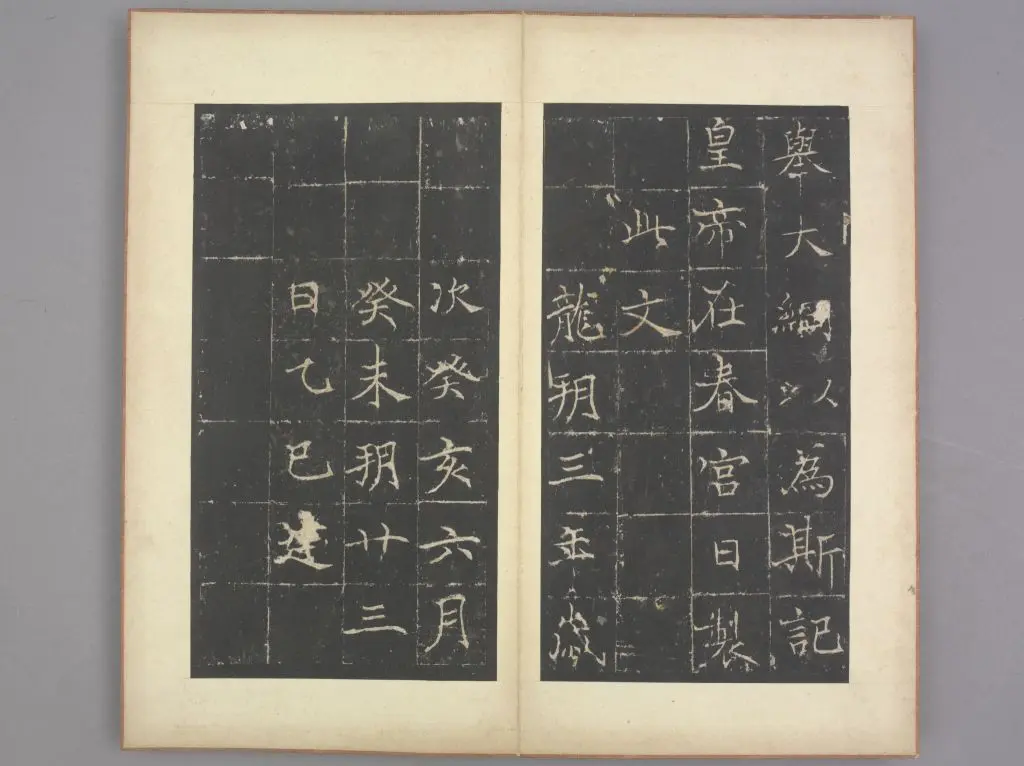 舉大綱以為斯記
皇帝在春宮日製
此文
龍朔三年歲
次癸亥六月
癸未朔廿三
日乙巳建